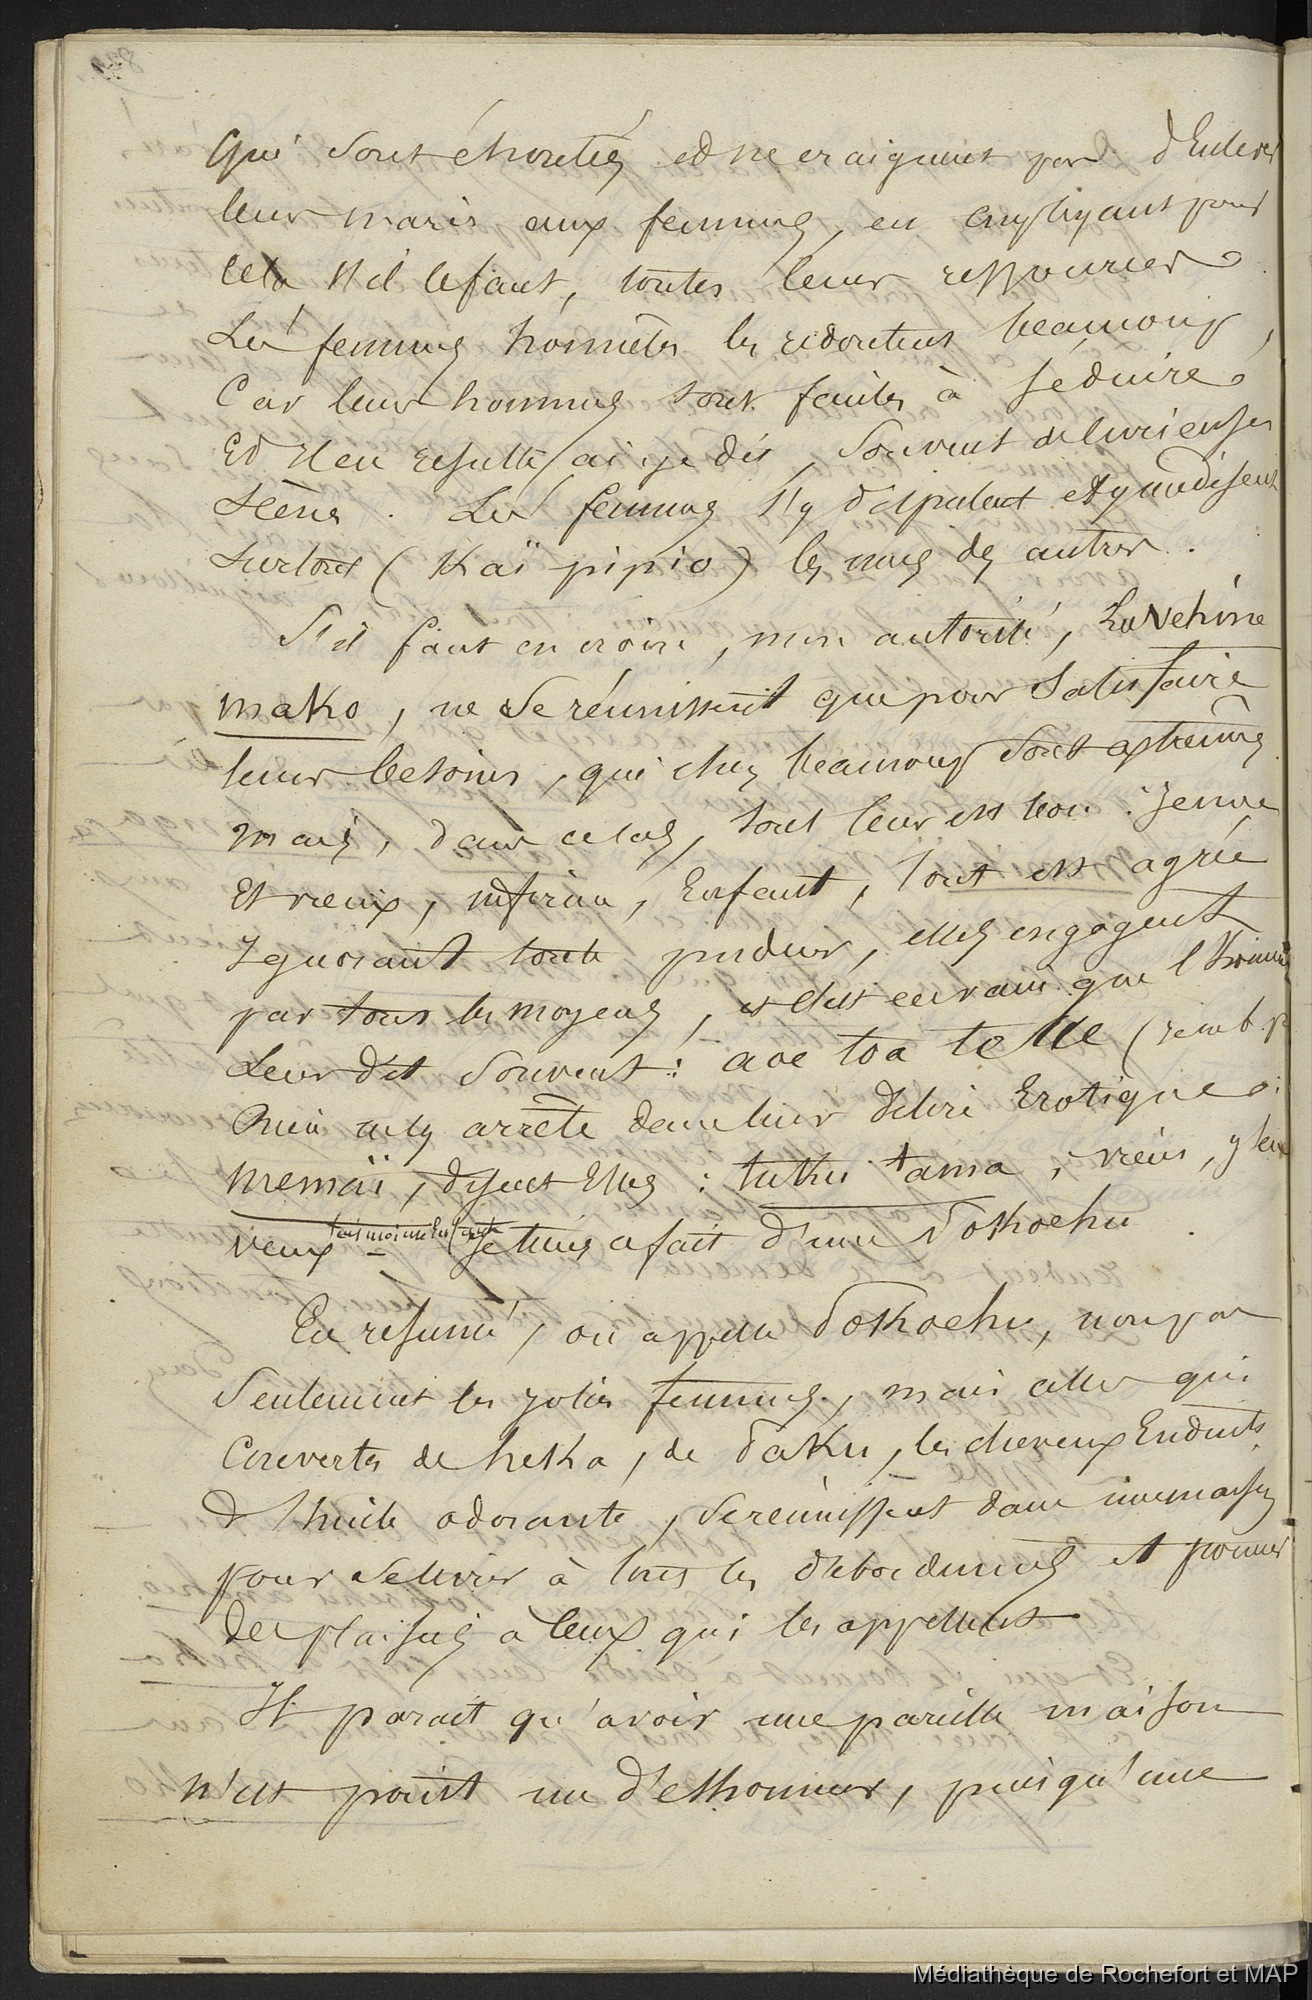 qui sont éhontées et ne craignent pas d'enlever
leur maris aux femmes, en employant pour
cela s'il le faut, toutes leurs ressources.
Les femmes honnêtes les redoutent beaucoup,
Car leurs hommes sont faciles à séduire.
Et il en résulte, ai-je dis, souvent de
scènes. Les femmes s'y disputent et y médisent
surtout (Kaï pipio) les unes des autres.
S'il faut en croire, mon autorité, La Vehine
mako, ne se réunissent que pour satisfaire
leurs besoins, qui chez beaucoup sont extrêmes
mais, dans ce cas, tout leur est bon : jeune
Et vieux, infirme, Enfant, tout est agrée
Ignorant toute pudeur, elles engagent
par tous les moyens, et c'est en vain que l'homme
Leur dit souvent : aoe toa te
Rien ne les arrête dans leur délire Erotique.
memaï, disent Elles : tama ; viens, je
veux c'est moi
En résumé, on appelle Tokoehu, non pas
Seulement les jolies femmes, mais celles qui
Couvertes de heka, de Taku, les cheveux Enduits
d'huile odorante, se réunissent dans une maison
pour se livrer à tous les débordements et donner
des plaisirs à ceux qui les appellent
Il parait qu'avoir une pareille maison
n'est point un déshonneur, puisqu'une
Médiathèque de Rochefort et MAP